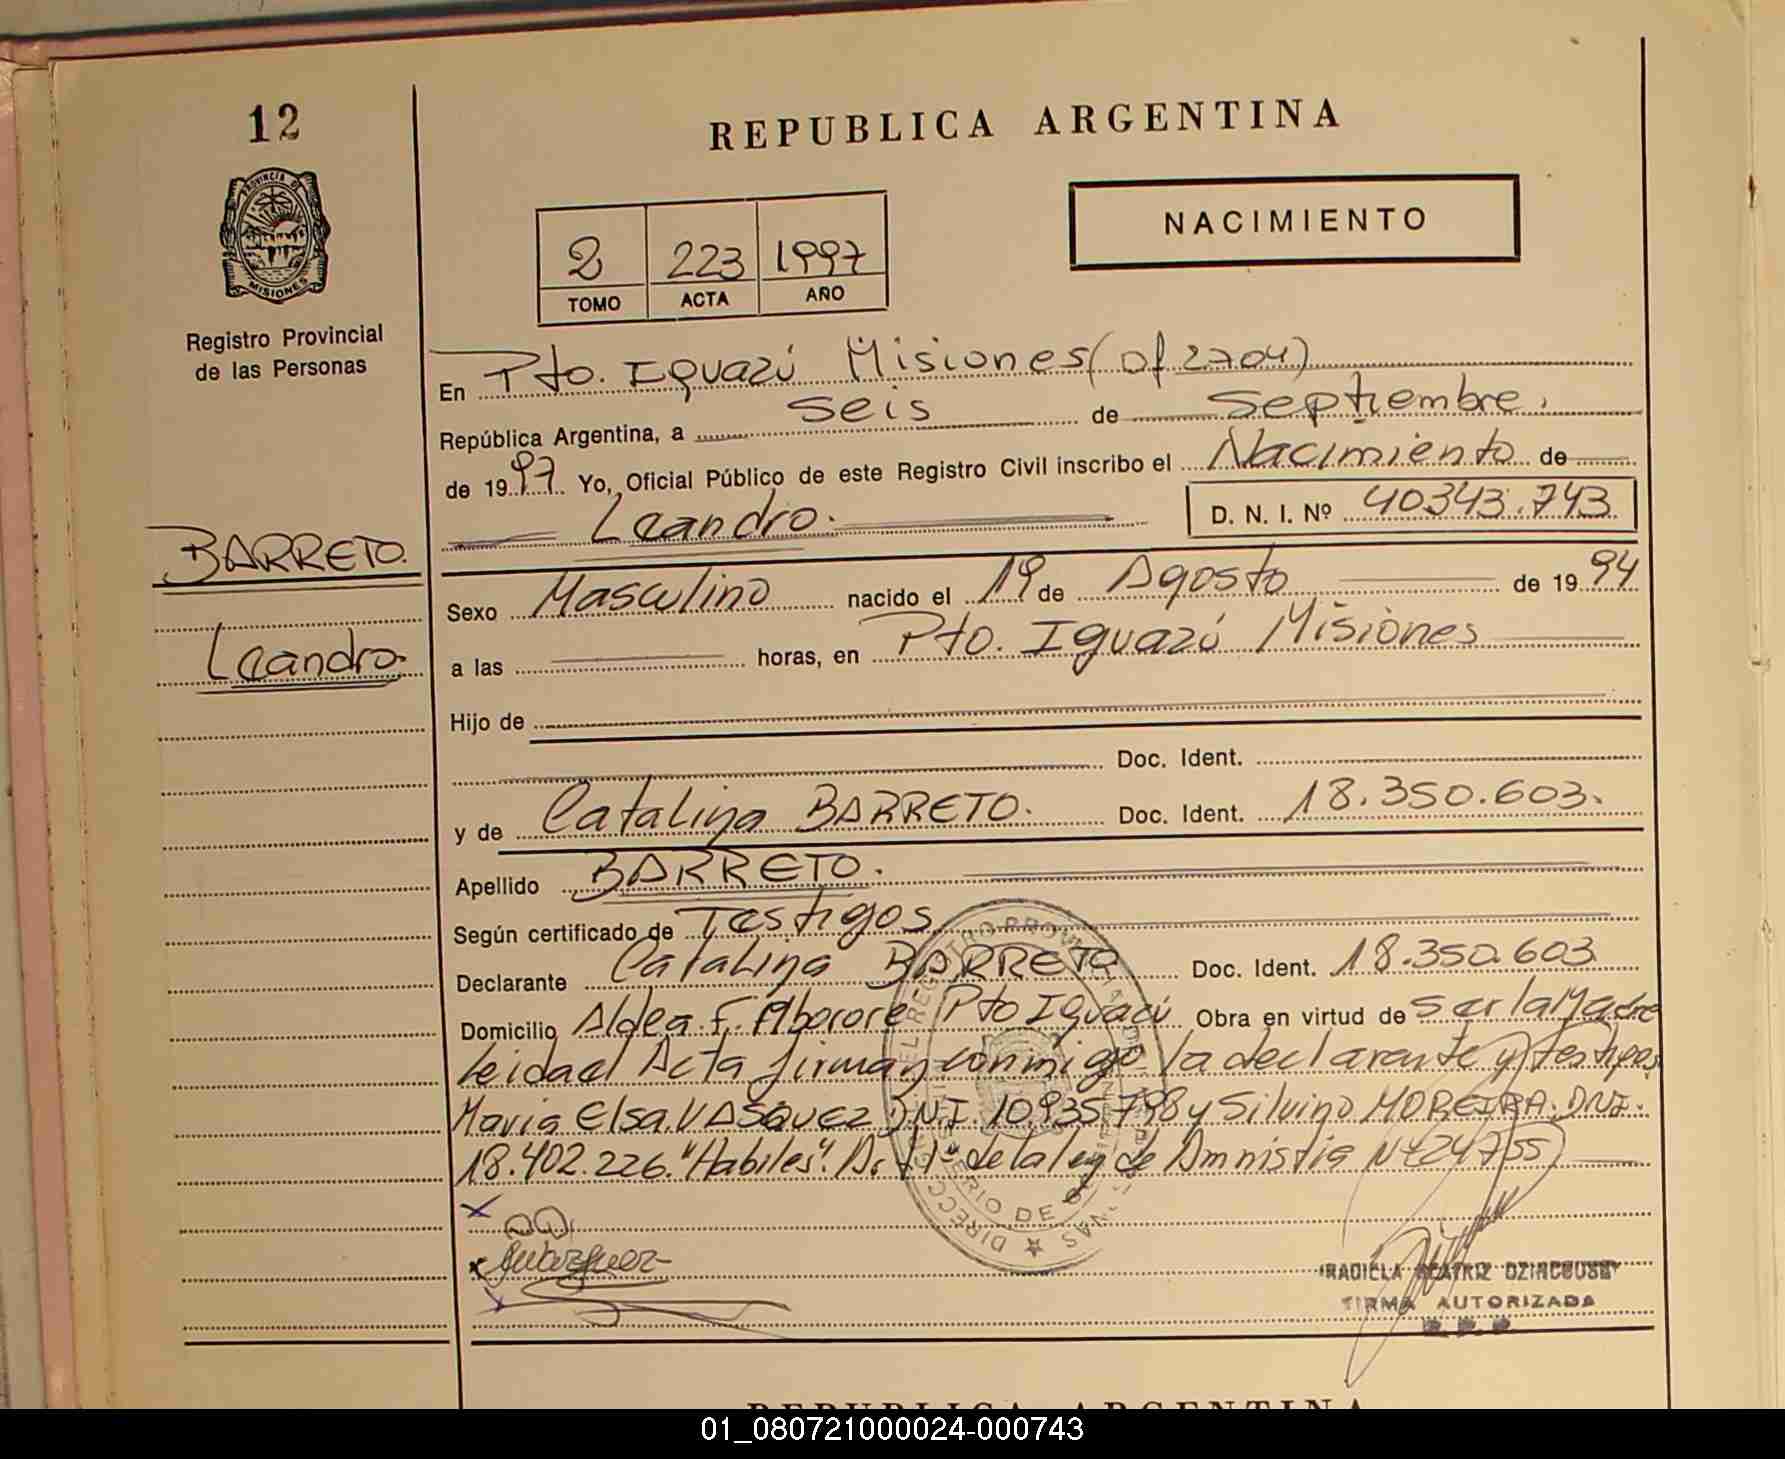 12
REPUBLICA ARGENTINA
PROVINCIA DE
MISIONES
NACIMIENTO
2 223 1997
TOMO ACTA AÑO
Registro Provincial
de las Personas
En Pto. Iguazú Misiones (of 2704)
República Argentina, a seis de Septiembre.
de 1997 Yo, Oficial Público de este Registro Civil inscribo el Nacimiento de
Leandro. D. N. I. Nº 40343.743
BARRETO.
Leandro.
Sexo Masculino nacido el 19 de Agosto de 1994
a las horas, en Pto. Iguazú Misiones
Hijo de
Doc. Ident.
y de Catalina BARRETO. Doc. Ident. 18.350.603.
Apellido BARRETO.
Según certificado de Testigos
Declarante Catalina BARRETO Doc. Ident. 18.350.603
Domicilio Aldea F. Pto Iguazú Obra en virtud de ser la Madre
Leidael Acta firman conmigo la declarante y testigos
Maria Elsa VASQUEZ DNI. 10.935.798 y Silvino MOREIRA. DNI.
18.402.226. "Habiles". Art 1º de la ley de Amnistia Nº 24755
FIRMA AUTORIZADA
REPUBLICA ARGENTINA
01_080721000024-000743